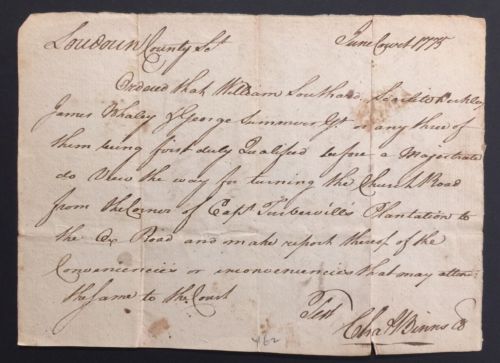 Loudoun County Sc.t June Court 1775
Ordered that William Southard
James Whaley & George Summers Gt. or any three of
them being first duly Qualified before a Magistrate
do View the way for turning the Church Road
from the Corner of Capt. Turbervill's Plantation to
the Ox Road and make report thereof of the
Conveniencies or inconveniencies that may attend
the same to the Court
Test
Cha.s Binns
462